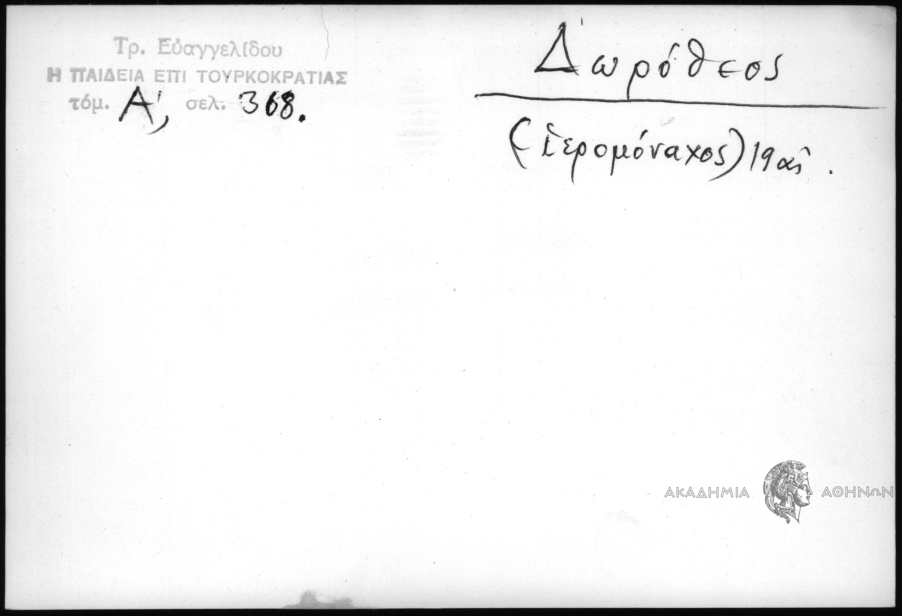 Τρ. Εὐαγγελίδου
Η ΠΑΙΔΕΙΑ ΕΠΙ ΤΟΥΡΚΟΚΡΑΤΙΑΣ
τόμ. Α', σελ. 368.
Δωρόθεος
(ἱερομόναχος) 19 αἰ.
ΑΚΑΔΗΜΙΑ ΑΘΗΝΩΝ